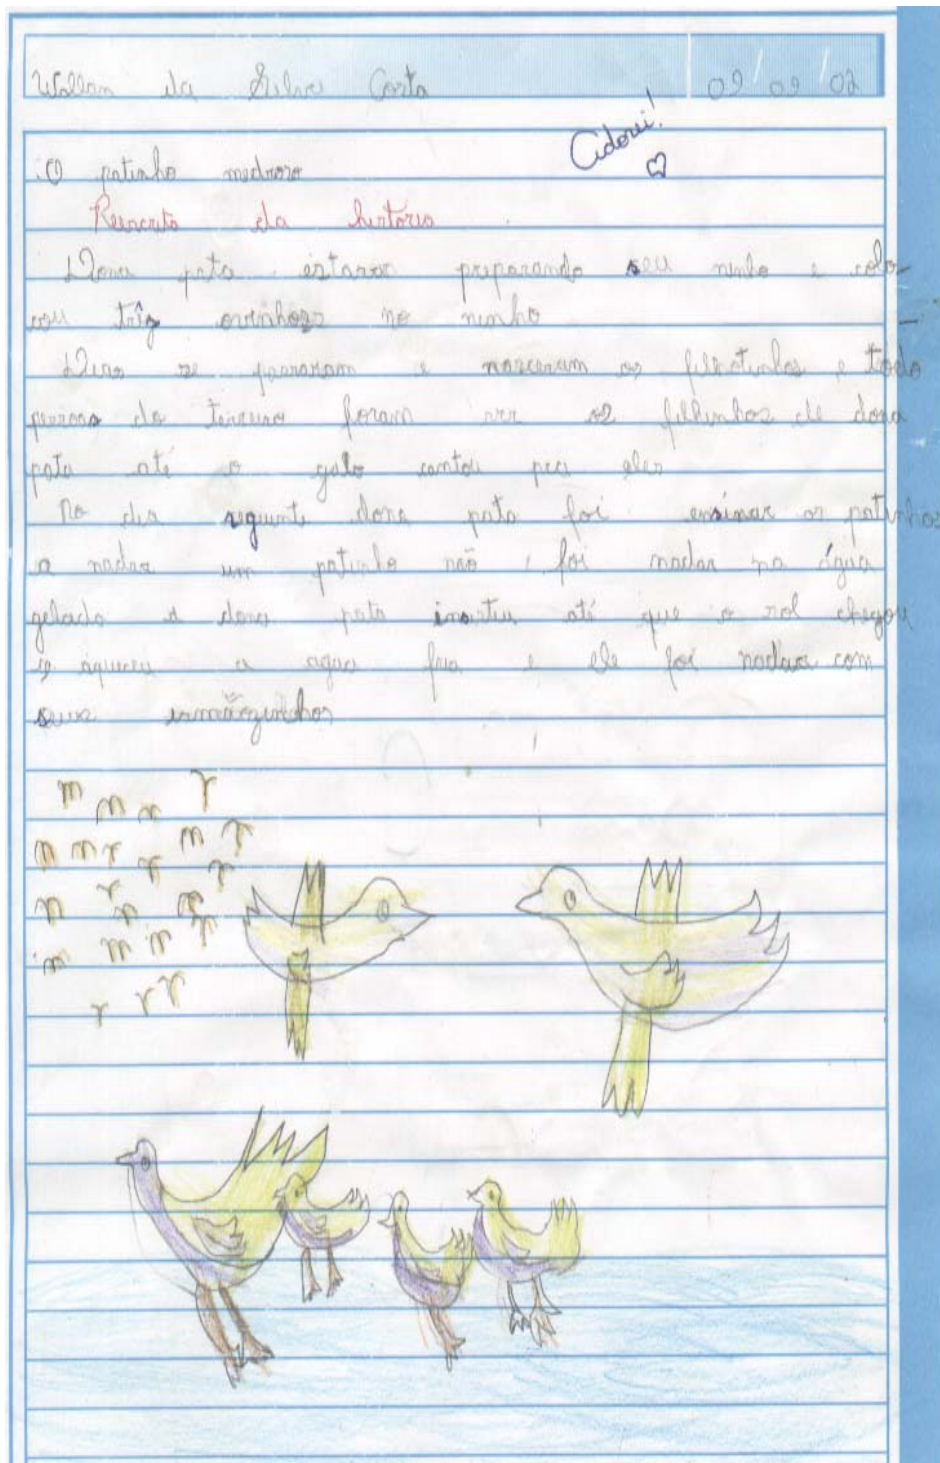 Wallan da Silva Costa 09/09/02
Adorei!
O patinho medroso
Reescrita da história
Dona pata estava preparando seu ninho e colo-
cou trîs ovinhoss no ninho
Dias se passaram e nasceram os filhotinhos e todo
pessoas do terreiro foram ver os filhinhos de dona
pata até o galo cantou pra eles
No dia seguinte dona pata foi ensinar os patinhos
a nadar um patinho não foi nadar na água
gelada e dona pata insistiu até que o sol chegou
e aqueceu a agua fria e ele foi nadar com
seus irmãozinhos